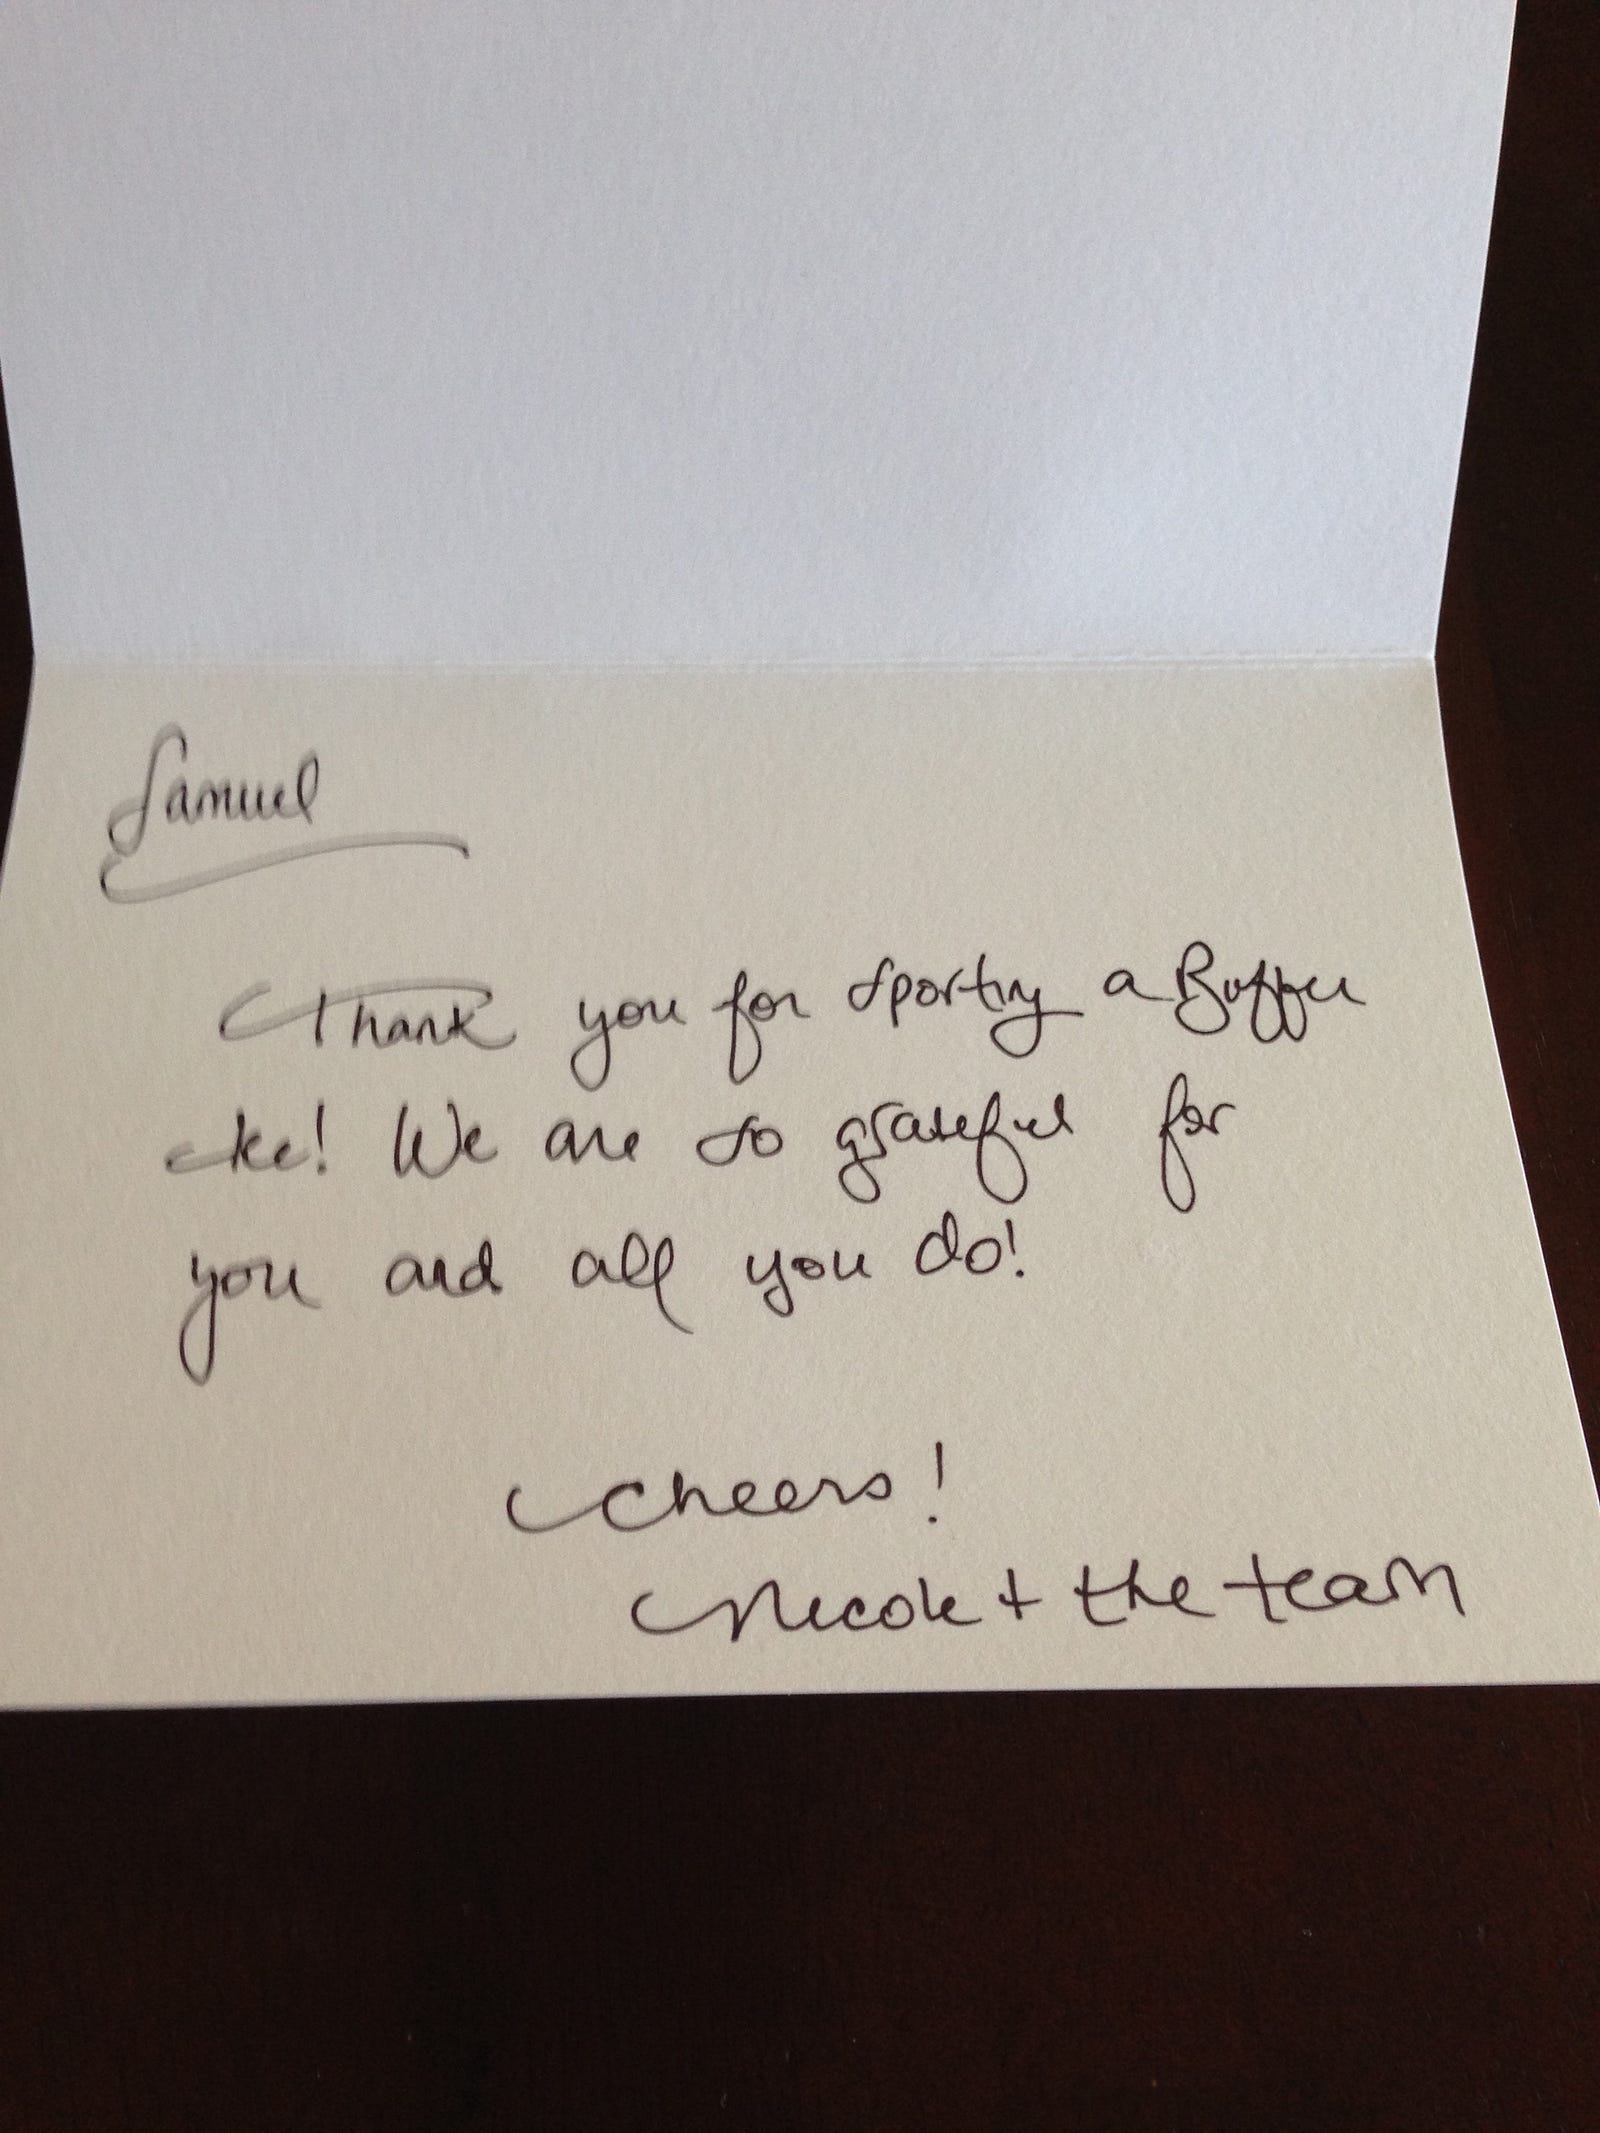 Samuel
Thank you for sporting a Buffer
tee! We are so grateful for
you and all you do!
Cheers!
Nicole + the team